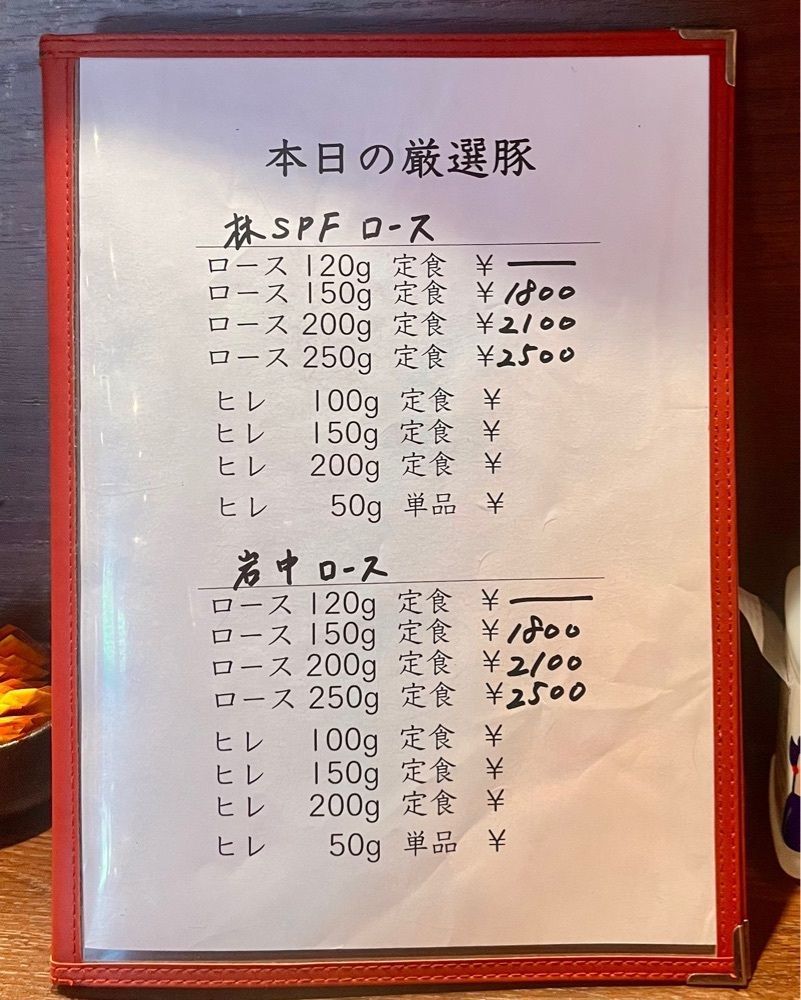 本日の厳選豚
林SPF ロース
ロース 120g 定食 ¥ ―
ロース 150g 定食 ¥ 1800
ロース 200g 定食 ¥2100
ロース 250g 定食 ¥2500
ヒレ 100g 定食 ¥
ヒレ 150g 定食 ¥
ヒレ 200g 定食 ¥
ヒレ 50g 単品 ¥
岩中 ロース
ロース 120g 定食 ¥ ―
ロース 150g 定食 ¥1800
ロース 200g 定食 ¥2100
ロース 250g 定食 ¥2500
ヒレ 100g 定食 ¥
ヒレ 150g 定食 ¥
ヒレ 200g 定食 ¥
ヒレ 50g 単品 ¥